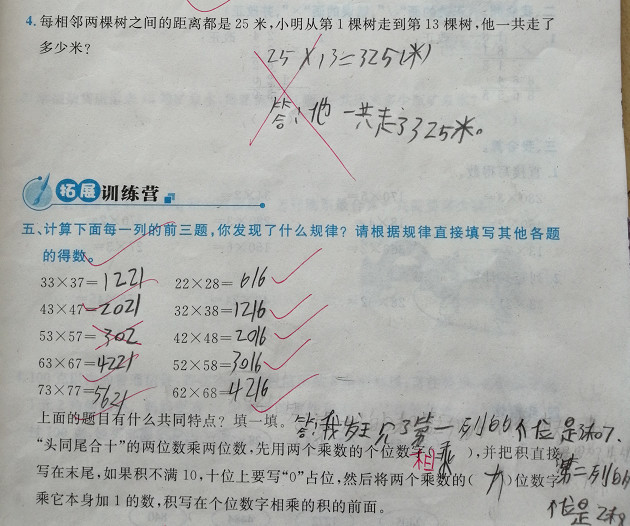 4. 每相邻两棵树之间的距离都是 25 米,小明从第 1 棵树走到第 13 棵树,他一共走了
多少米?
25×13=325(米)
答:他一共走了325米。
拓展训练营
五、计算下面每一列的前三题,你发现了什么规律? 请根据规律直接填写其他各题
的得数。
33×37=1221 22×28=616
43×47=2021 32×38=1216
53×57=302 42×48=2016
63×67=4221 52×58=3016
73×77=5621 62×68=4216
上面的题目有什么共同特点? 填一填。 答:我发现了第一列的个位是3和7、
“头同尾合十”的两位数乘两位数,先用两个乘数的个位数字(相乘),并把积直接 第二列的
写在末尾,如果积不满 10,十位上要写“0”占位,然后将两个乘数的( 十 )位数字
乘它本身加 1 的数,积写在个位数字相乘的积的前面。 个位是2和